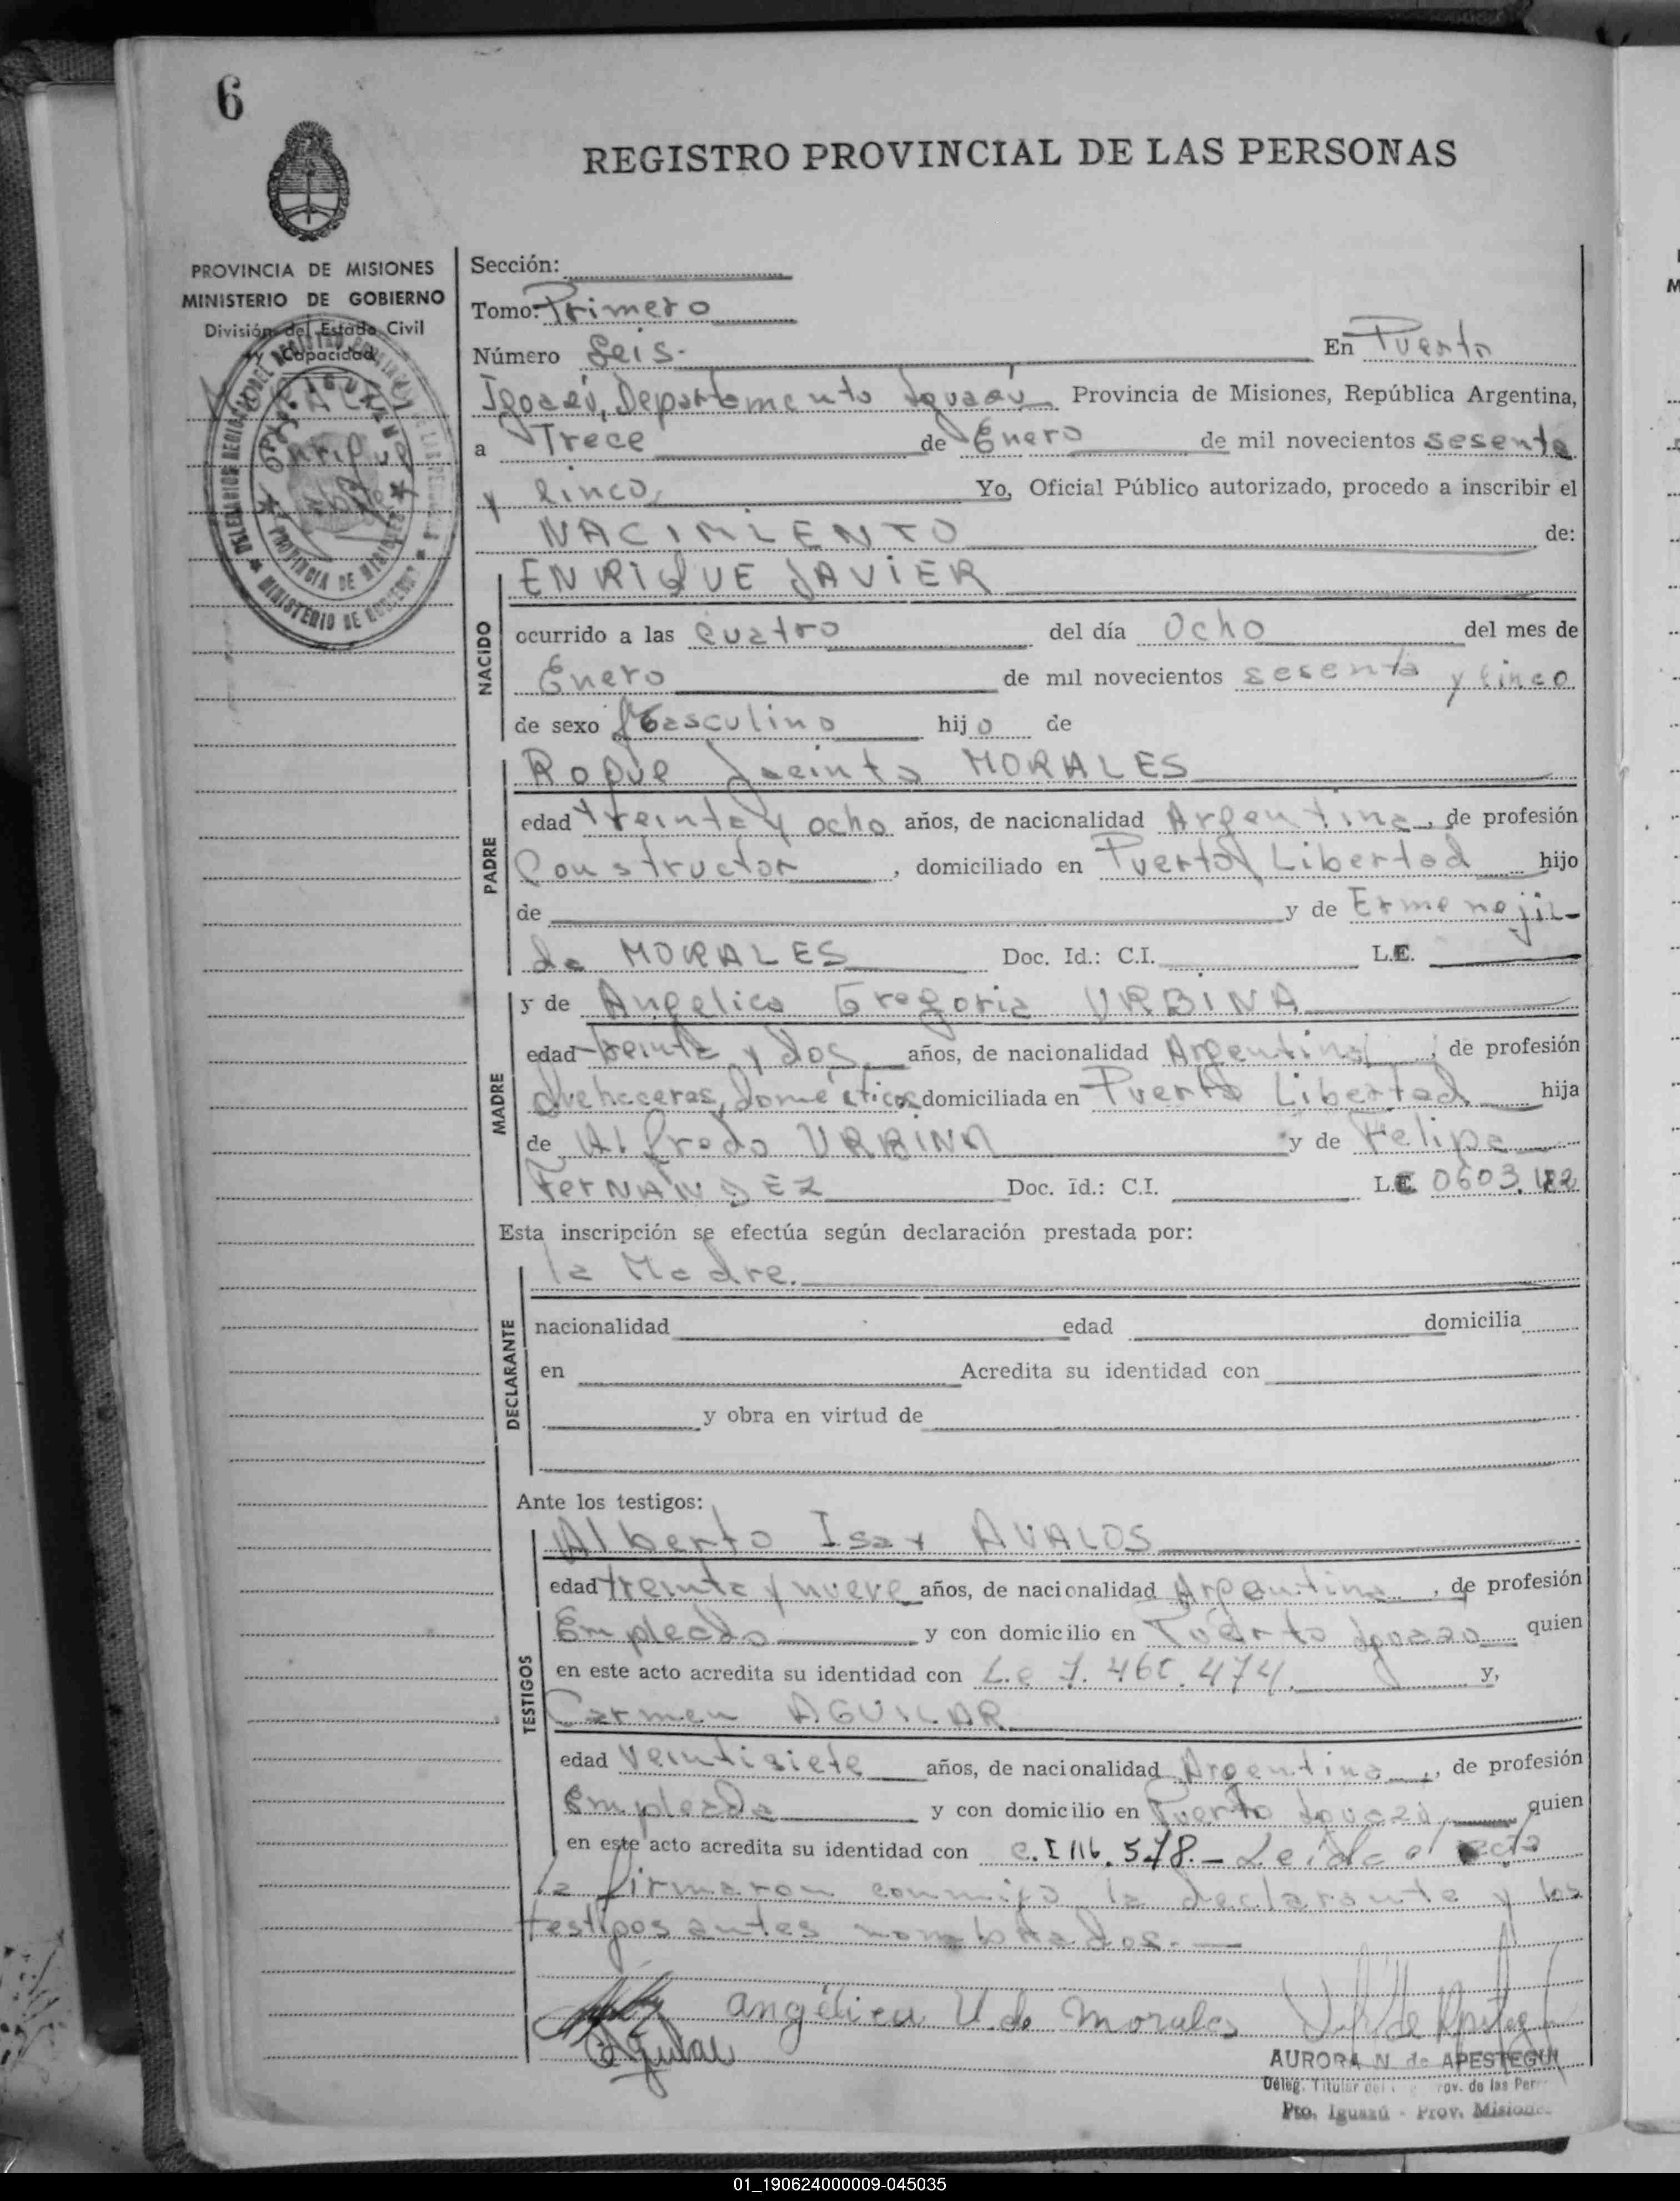 6
REGISTRO PROVINCIAL DE LAS PERSONAS
PROVINCIA DE MISIONES
MINISTERIO DE GOBIERNO
División del Estado Civil
y Capacidad
Sección:
Tomo: Primero
Número Seis.- En Puerto
Iguazú, Departamento Iguazú Provincia de Misiones, República Argentina,
a Trece de Enero de mil novecientos sesenta
y Cinco Yo, Oficial Público autorizado, procedo a inscribir el
NACIMIENTO de:
NACIDO
ENRIQUE JAVIER
ocurrido a las cuatro del día Ocho del mes de
Enero de mil novecientos sesenta y Cinco
de sexo Masculino hijo de
PADRE
Roque Jacinto MORALES
edad treinta y ocho años, de nacionalidad Argentina, de profesión
Constructor, domiciliado en Puerto Libertad hijo
de y de Ermenejil-
da MORALES Doc. Id.: C.I. L.E.
MADRE
y de Angelica Gregoria URBINA
edad treinta y dos años, de nacionalidad Argentina, de profesión
Quehaceres domésticos domiciliada en Puerto Libertad hija
de Alfredo URBINA y de Felipa
FerNANDEZ Doc. Id.: C.I. L.C 0603.122
Esta inscripción se efectúa según declaración prestada por:
DECLARANTE
la Madre.
nacionalidad edad domicilia
en Acredita su identidad con
y obra en virtud de
Ante los testigos:
TESTIGOS
Alberto AVALOS
edad treinta y nueve años, de nacionalidad Argentina, de profesión
Empleado y con domicilio en Puerto Iguazú quien
en este acto acredita su identidad con L.e 7. 474 y,
Carmen AGUILAR
edad Veintisiete años, de nacionalidad Argentina, de profesión
Empleada y con domicilio en Puerto Iguazú, quien
en este acto acredita su identidad con C.I 116.578.- Leída el acta
la firmaron conmigo la declarante y los
testigos antes nombrados.-
Angélica U. de Morales
Aguilar
AURORA N. de APESTEGUI
Deleg. Titular del rov. de las Per
Pto. Iguazú - Prov. Misiones
01_190624000009-045035